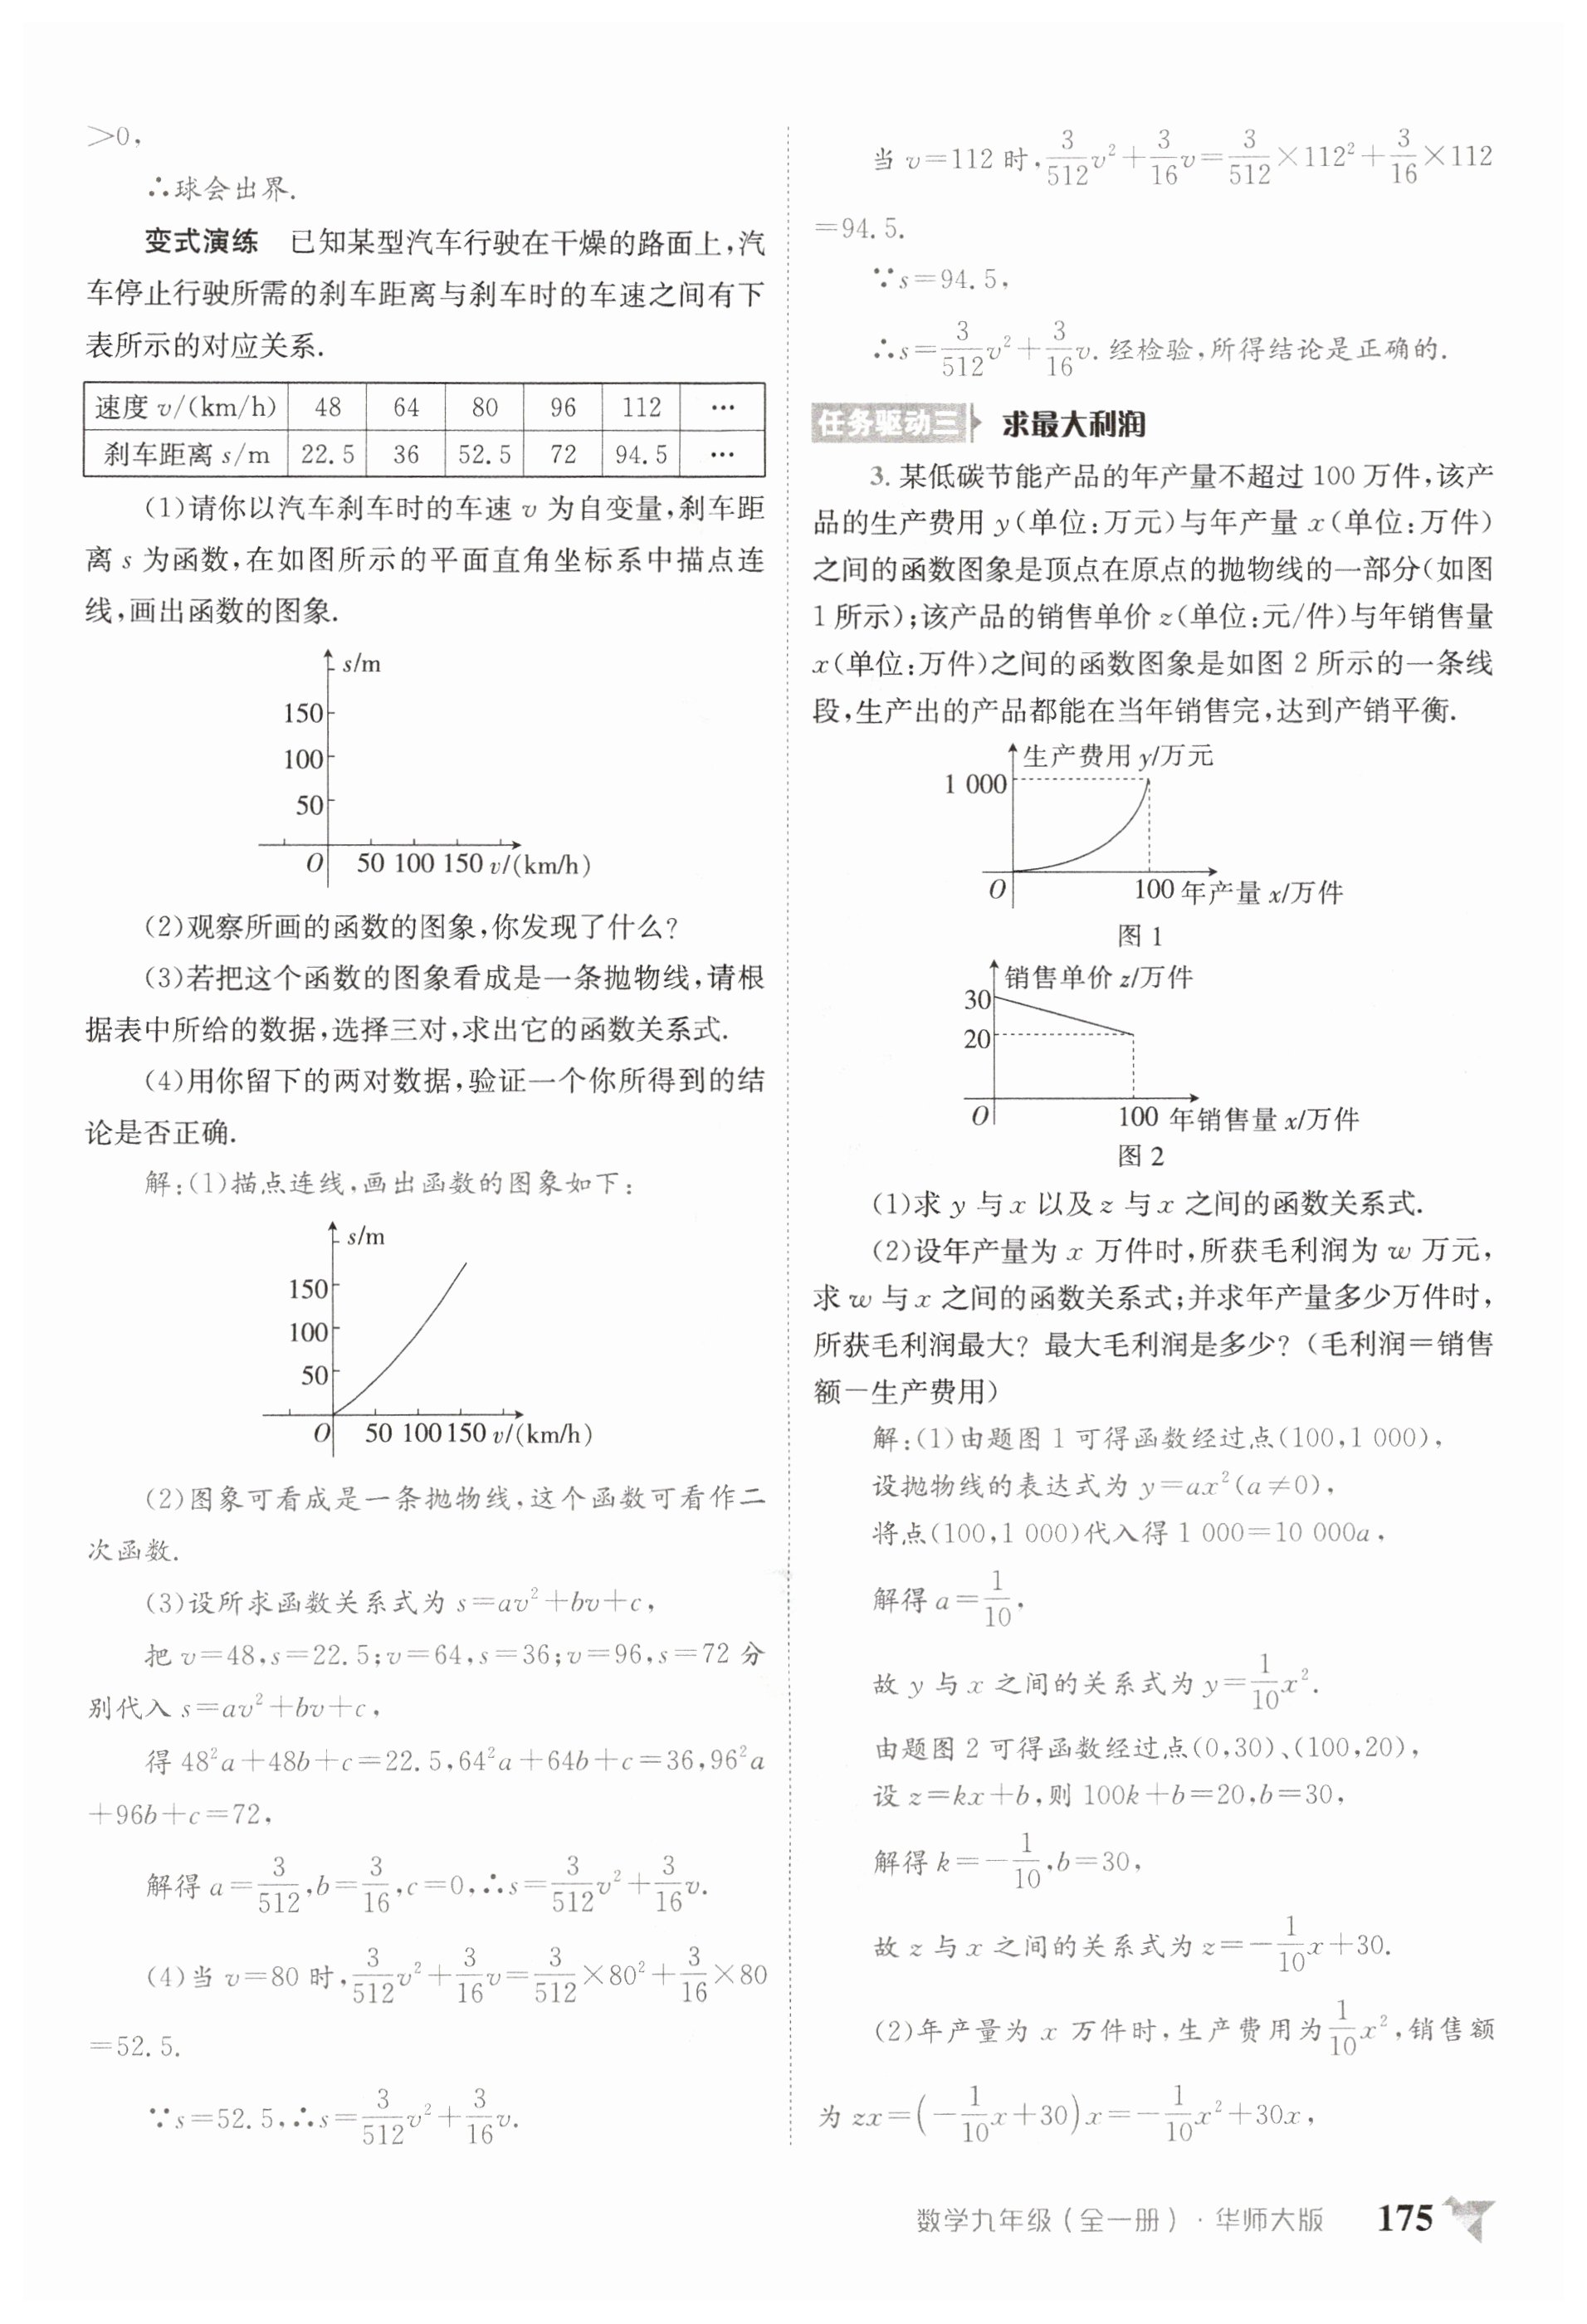 >0,
∴球会出界.
变式演练 已知某型汽车行驶在干燥的路面上,汽
车停止行驶所需的刹车距离与刹车时的车速之间有下
表所示的对应关系.
速度 v/(km/h) 48 64 80 96 112 …
刹车距离 s/m 22.5 36 52.5 72 94.5 …
(1)请你以汽车刹车时的车速 v 为自变量,刹车距
离 s 为函数,在如图所示的平面直角坐标系中描点连
线,画出函数的图象.
s/m
150
100
50
O 50 100 150 v/(km/h)
(2)观察所画的函数的图象,你发现了什么?
(3)若把这个函数的图象看成是一条抛物线,请根
据表中所给的数据,选择三对,求出它的函数关系式.
(4)用你留下的两对数据,验证一个你所得到的结
论是否正确.
解:(1)描点连线,画出函数的图象如下:
s/m
150
100
50
O 50 100 150 v/(km/h)
(2)图象可看成是一条抛物线,这个函数可看作二
次函数.
(3)设所求函数关系式为 s=av²+bv+c,
把 v=48,s=22.5;v=64,s=36;v=96,s=72 分
别代入 s=av²+bv+c,
得 48²a+48b+c=22.5,64²a+64b+c=36,96²a
+96b+c=72,
解得 a=3/512,b=3/16,c=0,∴s=3/512v²+3/16v.
(4)当 v=80 时,3/512v²+3/16v=3/512×80²+3/16×80
=52.5.
∵s=52.5,∴s=3/512v²+3/16v.
当 v=112 时,3/512v²+3/16v=3/512×112²+3/16×112
=94.5.
∵s=94.5,
∴s=3/512v²+3/16v. 经检验,所得结论是正确的.
任务驱动三 求最大利润
3. 某低碳节能产品的年产量不超过 100 万件,该产
品的生产费用 y(单位:万元)与年产量 x(单位:万件)
之间的函数图象是顶点在原点的抛物线的一部分(如图
1 所示);该产品的销售单价 z(单位:元/件)与年销售量
x(单位:万件)之间的函数图象是如图 2 所示的一条线
段,生产出的产品都能在当年销售完,达到产销平衡.
生产费用 y/万元
1 000
O 100 年产量 x/万件
图 1
销售单价 z/万件
30
20
O 100 年销售量 x/万件
图 2
(1)求 y 与 x 以及 z 与 x 之间的函数关系式.
(2)设年产量为 x 万件时,所获毛利润为 w 万元,
求 w 与 x 之间的函数关系式;并求年产量多少万件时,
所获毛利润最大? 最大毛利润是多少?(毛利润=销售
额-生产费用)
解:(1)由题图 1 可得函数经过点(100,1 000),
设抛物线的表达式为 y=ax²(a≠0),
将点(100,1 000)代入得 1 000=10 000a,
解得 a=1/10,
故 y 与 x 之间的关系式为 y=1/10x².
由题图 2 可得函数经过点(0,30)、(100,20),
设 z=kx+b,则 100k+b=20,b=30,
解得 k=-1/10,b=30,
故 z 与 x 之间的关系式为 z=-1/10x+30.
(2)年产量为 x 万件时,生产费用为1/10x²,销售额
为 zx=(-1/10x+30)x=-1/10x²+30x,
数学九年级(全一册)·华师大版 175